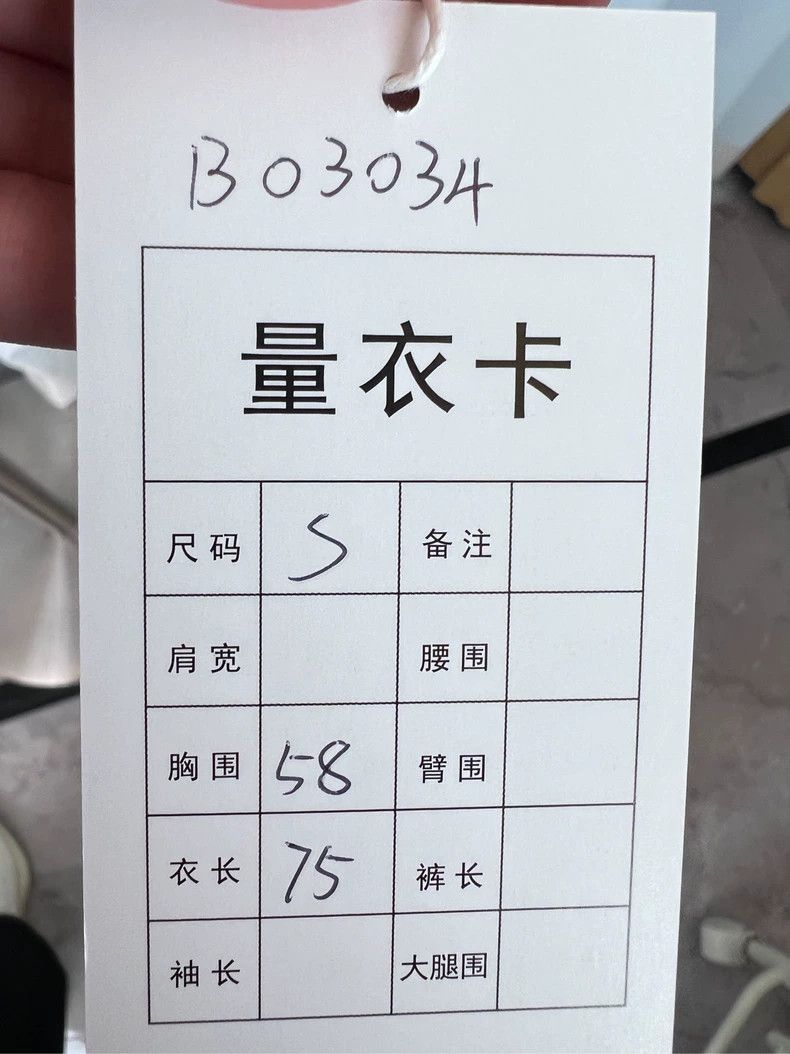 B03034
量衣卡
尺码 S 备注
肩宽 腰围
胸围 58 臂围
衣长 75 裤长
袖长 大腿围